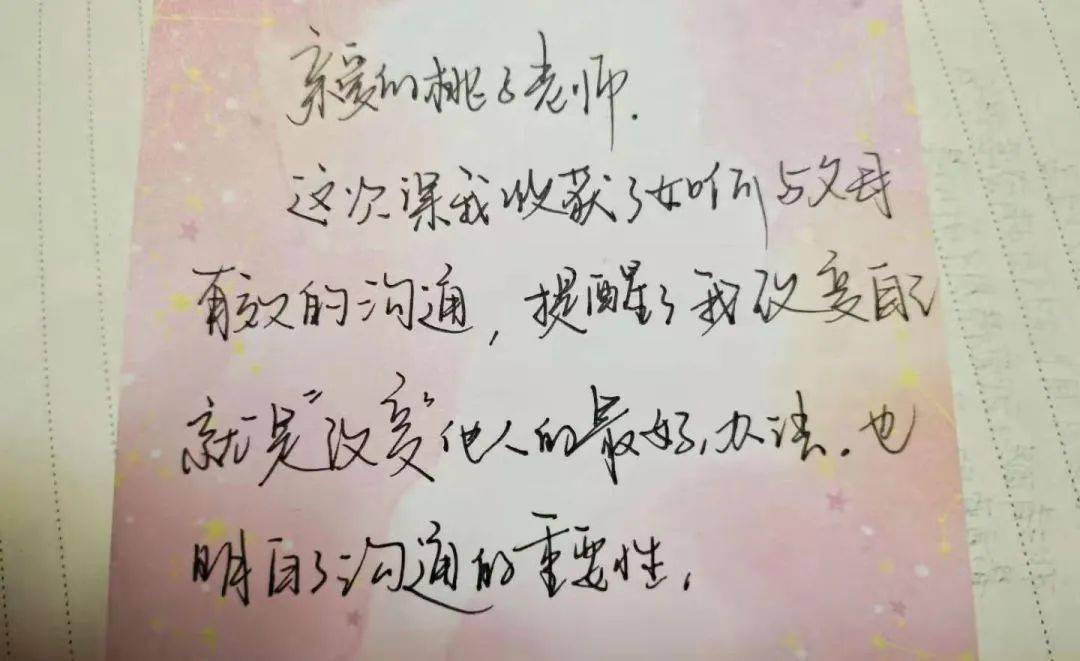 亲爱的桃子老师.
这次课我收获了如何与父母
有效的沟通,提醒了我改变自己
就是"改变"他人的最好办法.也
明白了沟通的重要性.